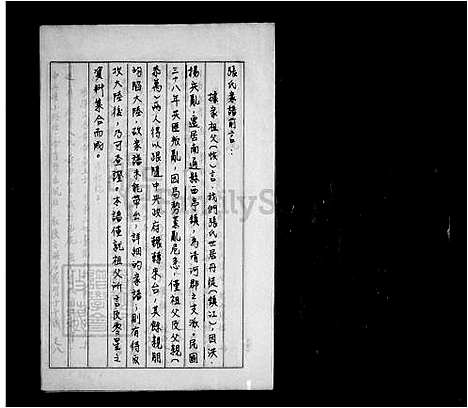 張氏家譜前言：
據家祖父（恢）言，我們張氏世居丹徒（鎮江），因洪、
楊兵亂，遷居南通縣西亭鎮，為清河郡之支派。民國
三十八年共匪叛亂，因局勢紊亂危急，僅祖父及父親（
）兩人得以跟隨中央政府輾轉來台，其餘親朋
均陷大陸，故家譜未能帶出，詳細的家譜，則有待反
攻大陸後，乃可查證。本譜僅就祖父所言及零星之
資料集合而成。
FamilyS